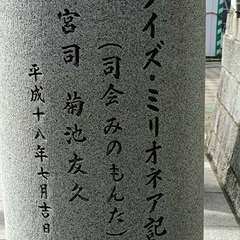 イズ・ミリオネア記
(司会 みのもんた)
宮司 菊池友久
平成十八年七月吉日